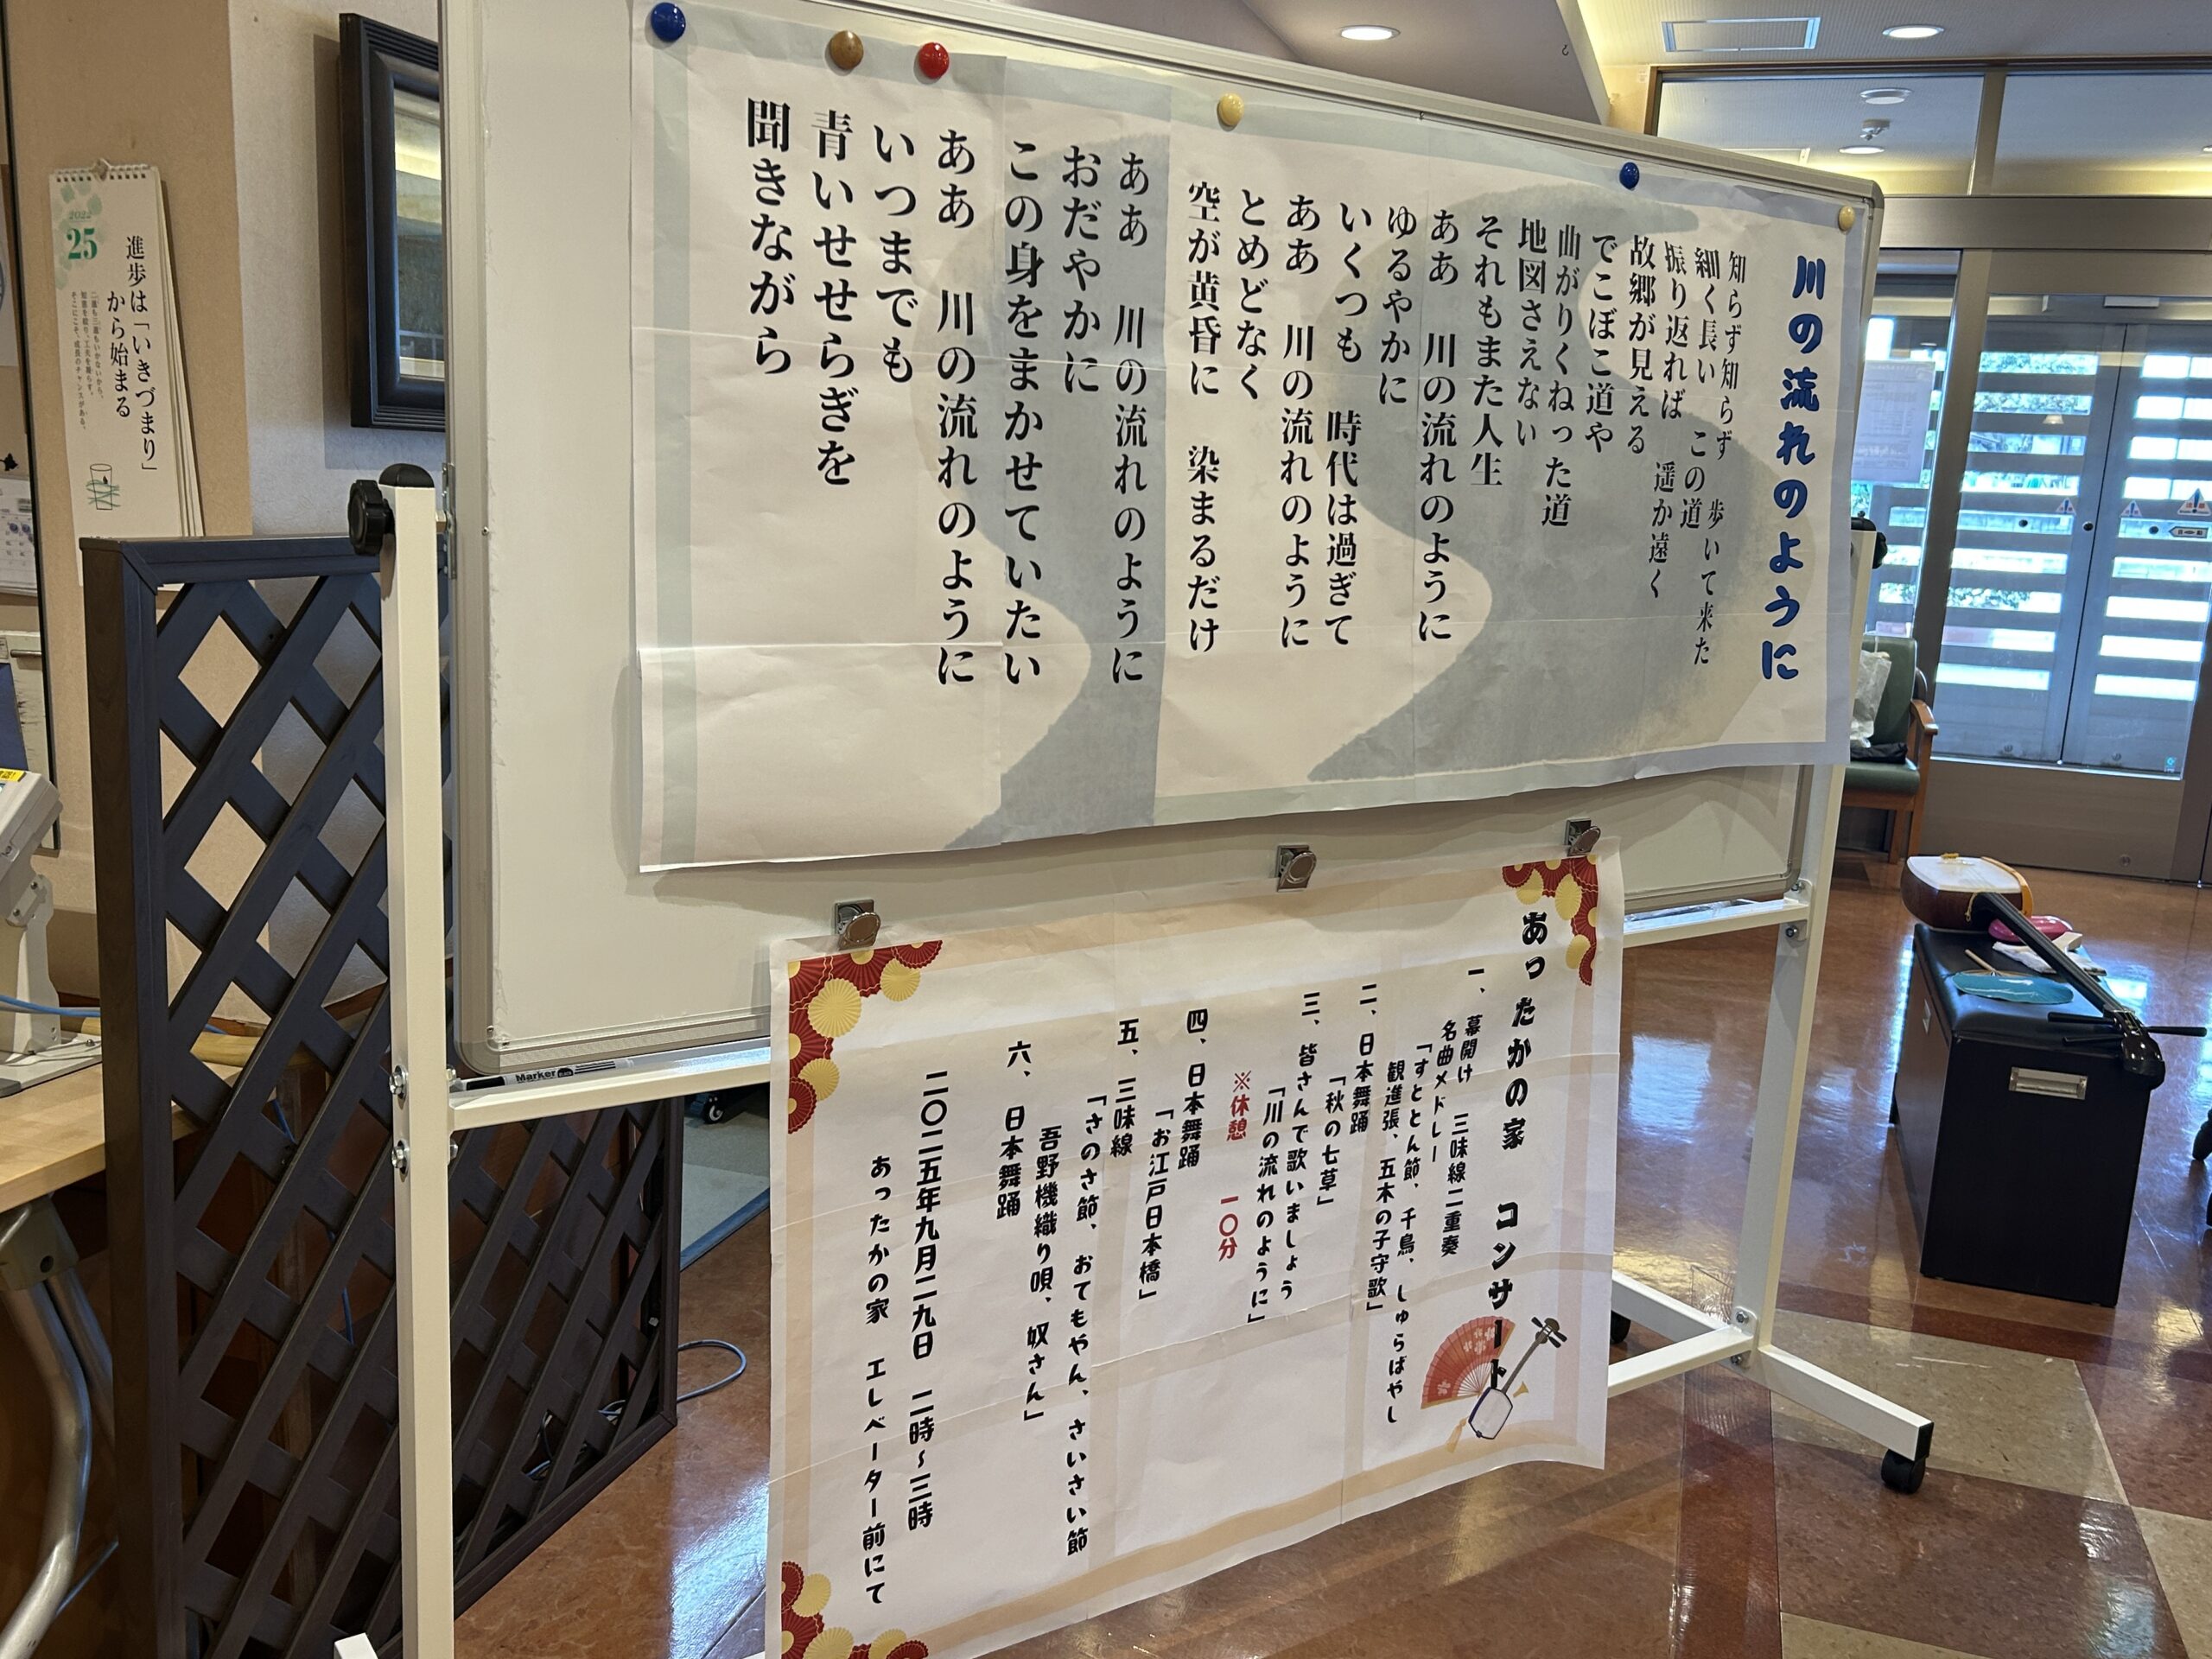 川の流れのように
知らず知らず　歩いて来た
細く長い　この道
振り返れば　遥か遠く
故郷が見える
でこぼこ道や
曲がりくねった道
地図さえない
それもまた人生
ああ　川の流れのように
ゆるやかに
いくつも　時代は過ぎて
ああ　川の流れのように
とめどなく
空が黄昏に　染まるだけ
ああ　川の流れのように
おだやかに
この身をまかせていたい
ああ　川の流れのように
いつまでも
青いせせらぎを
聞きながら
あったかの家　コンサート
一、幕開け　三味線二重奏
名曲メドレー
「すととん節、千鳥、しゅらばやし
観進張、五木の子守歌」
二、日本舞踊
「秋の七草」
三、皆さんで歌いましょう
「川の流れのように」
※休憩　一〇分
四、日本舞踊
「お江戸日本橋」
五、三味線
「さのさ節、おてもやん、さいさい節
吾野機織り唄、奴さん」
六、日本舞踊
二〇二五年九月二九日　二時〜三時
あったかの家　エレベーター前にて
2022
25
進歩は「いきづまり」
から始まる
Marker